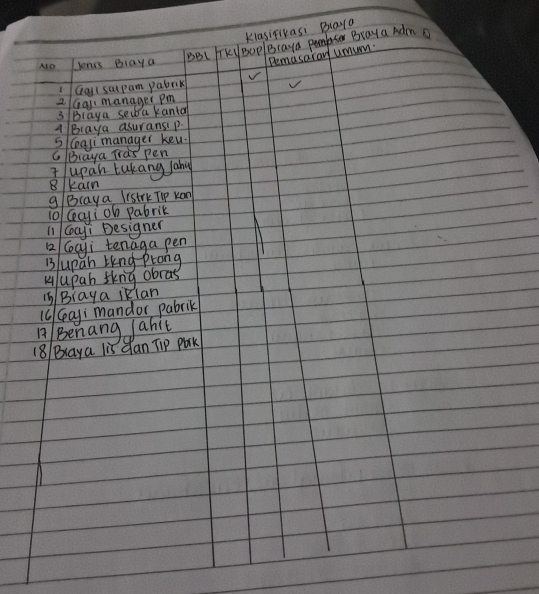 Klasifikasi Biaya
No Jenis Biaya BBL TKL BOP Biaya Pemasaran Biaya Adm &
Pemasaran umum.
1 Gaji satpam pabrik ✓
2 Gaji manager pm ✓
3 Biaya sewa kantor
4 Biaya asuransi p.
5 Gaji manager keu.
6 Biaya Tras pen
7 upah tukang Jahit
8 Kain
9 Biaya listrk Tlp kan
10 Gaji ob pabrik
11 Gaji Designer
12 Gaji tenaga pen
13 upah tkng ptong
14 upah tkng obras
15 Biaya iklan
16 Gaji mandor pabrik
17 Benang Jahit
18 Biaya lis dan Tlp pbrk